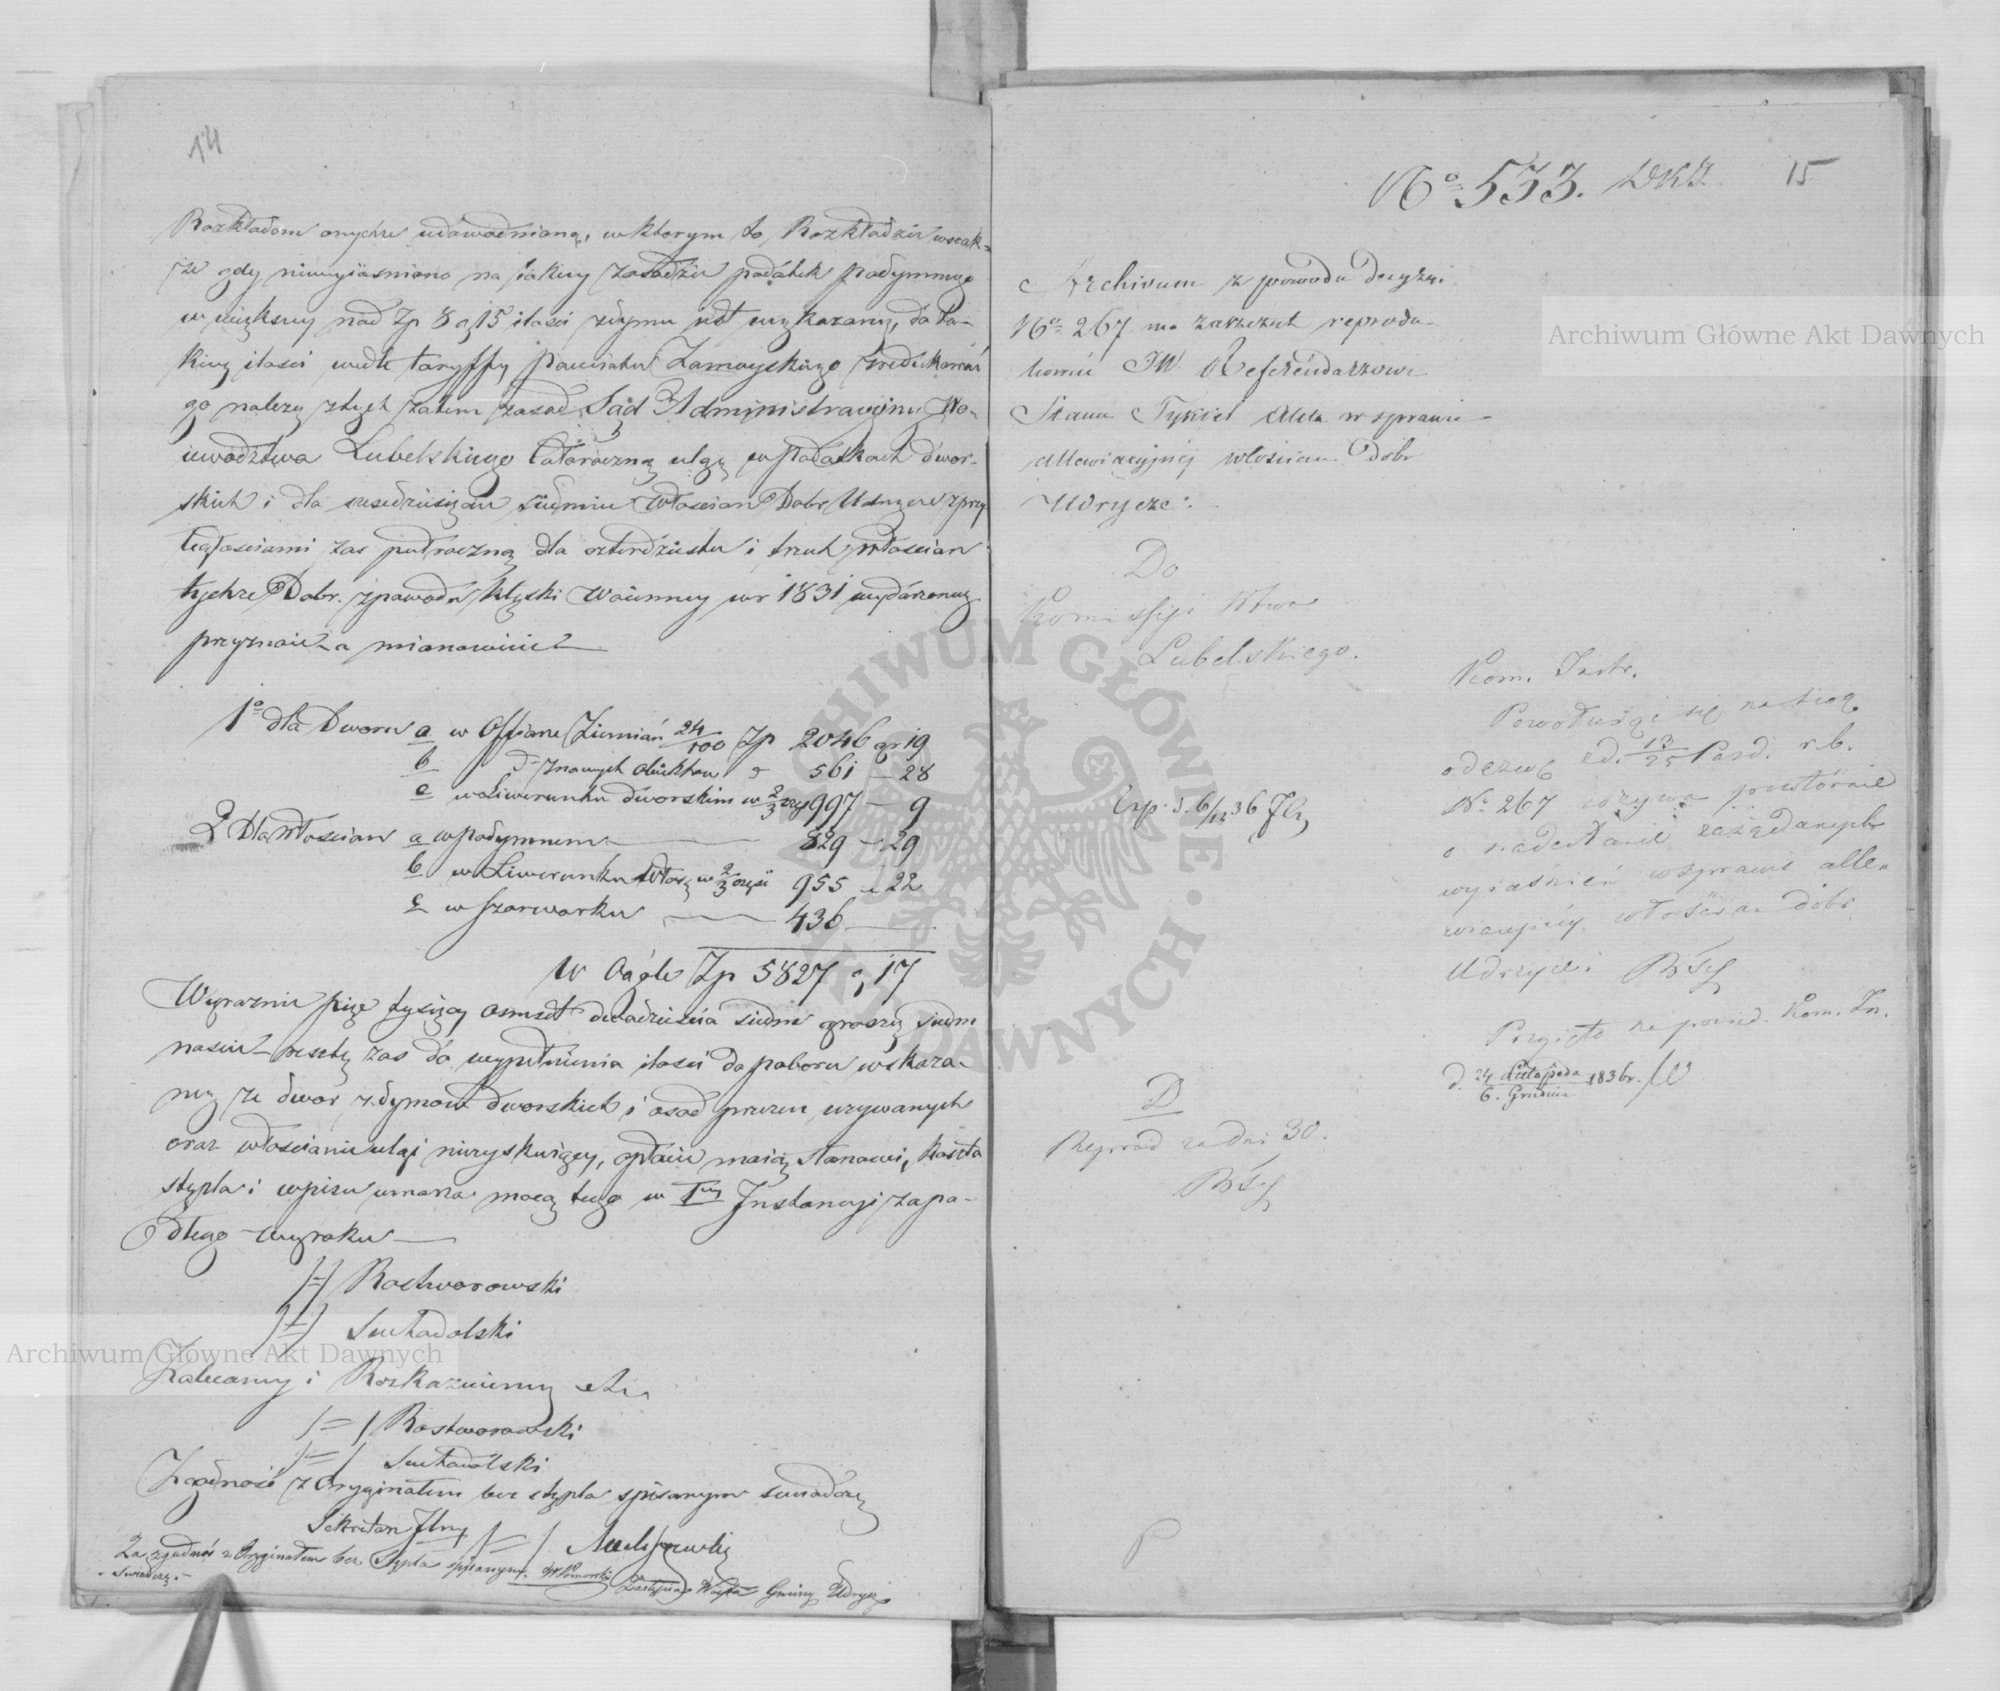 14
Rozkładem onychże udowodnioną, w którym to Rozkładzie wszak-
że gdy niewyiaśniono na iakiey zasadzie podatek podymnego
w większey nad Zp 8 g 15 ilości z dymu iest wykazany, do ta-
kiey ilości wedle taryffy Powiatu Zamoyskiego zredukować
go należy z tych zatem zasad Sąd Administracyiny Wo-
iewodztwa Lubelskiego całoroczną ulgę w podatkach dwor-
skich i dla sześćdziesiąt siedmiu Włościan Dobr Udrycze z przy
ległościami zaś pułroczną dla czterdziestu i trzech włościan
tychże Dobr. z powodu klęski Woienney w r 1831 wydarzoney
przyznaie a mianowicie
1o dla Dworu a w Offiarze Ziemiań 24/100 Zp 2046 gr 19
b d znowych 561 – 28
c w Liwerunku dworskim w 2/3 częs 997 – 9
2 Dla Włościan a w podymnem 829 – 29
b w Liwerunku Włoś w 2/3 części 955 – 22
c w Szarwarku 436
w Ogóle Zp 5827 g 17
Wyraznie pięc tysięcy osmset dwadzieścia siedm groszy siedm
naście resztę zaś do wypełnienia ilości do poboru wskaza-
ney ze dwor z dymów dworskich i osad przezeń używanych
oraz włościanie ulgi niezyskuiący, opłacić maią stanowi, koszta
stępla i wpisu umarza mocą tego w Iey Instancyi zapa-
dłego wyroku
/=/ Rostworowski
/=/ Suchodolski
Zalecamy i Rozkazuiemy etc.
/=/ Rostworowski
/=/ Suchodolski
Zgodność z Oryginałem bez stępla spisanym swiadczy
Sekretarz Jlny /=/
Za zgodność z Oryginałem bez Stępla spisanym.
swiadczę.
Zastępca Wójta Gminy Udrycz
No 533. 15
Archivum z powodu decyzyi
No 267 ma zaszczyt reprodu-
kować JW Referendarzowi
Stanu Tykiel akta w sprawie
allewiacyjnéj włościan Dóbr
Udrycze:
Do
Komissyi Wtwa
Lubelskiego.
Exp. d. 6/12 36
D
Reprod za dni 30.
Kom. Instr.
Powołując się na swoją
odezwę z d. 13/25 Pazd. r. b.
No 267 wzywa powtórnie
o nadesłanie zażądanych
wyiaśnień w sprawie alle-
wiacyjnéj włościan dóbr
Udrycze:
Przyięto na posied. Kom. In.
d. 24 Listopada / 6. Grudnia 1836 r.
Archiwum Główne Akt Dawnych
Archiwum Główne Akt Dawnych
ARCHIWUM GŁÓWNE AKT DAWNYCH